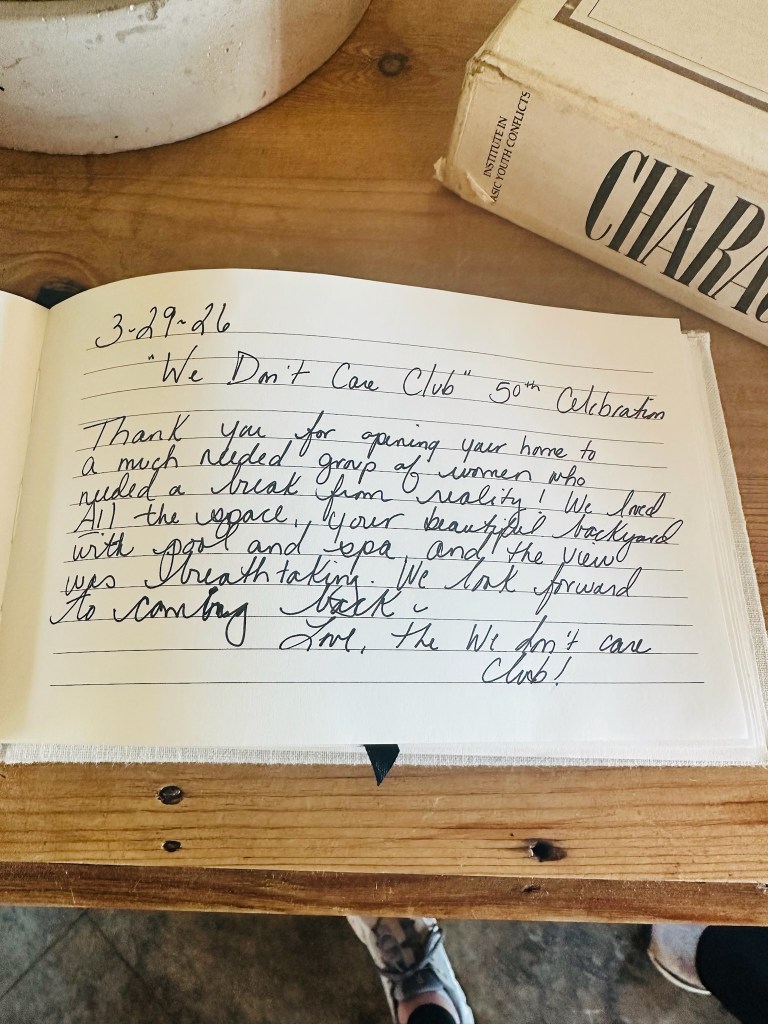 INSTITUTE IN
ASIC YOUTH CONFLICTS
CHARAC
3-29-26
"We Don't Care Club" 50th Celebration
Thank you for opening your home to
a much needed group of women who
needed a break from reality! We loved
All the space, your beautiful backyard
with pool and spa, and the view
was breathtaking. We look forward
to coming back
Love, the We don't care
Club!